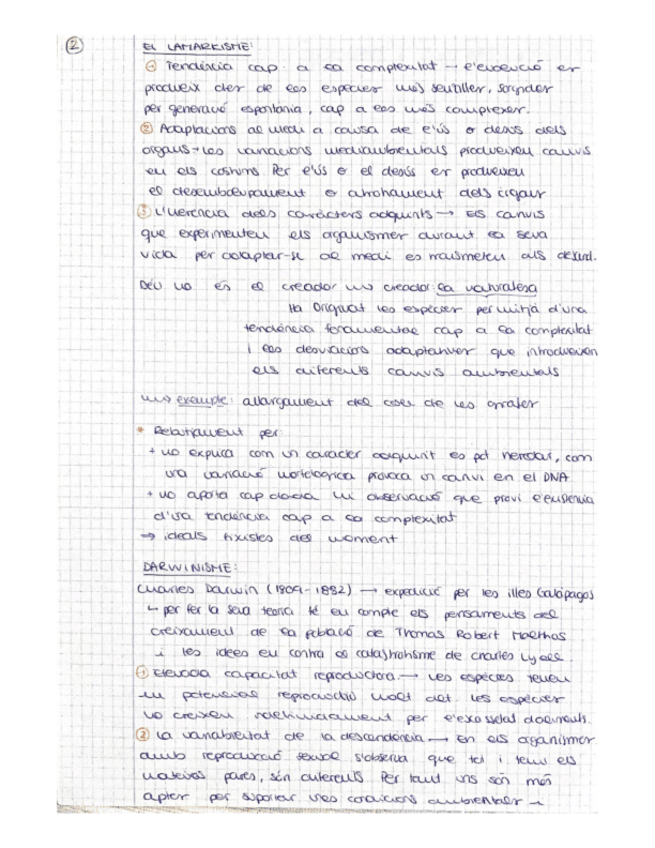 2
EL LAMARKISME:
① Tendència cap a la complexitat → l'evolució es
produeix des de les espècies més senzilles, sorgides
per generació espontània, cap a les més complexes.
② Adaptacions al medi a causa de l'ús o desús dels
òrgans → les variacions mediambientals produeixen canvis
en els costums. Per l'ús o el desús es produeixen
el desenvolupament o atrofiament dels òrgans
③ L'herència dels caràcters adquirits → Els canvis
que experimenten els organismes durant la seva
vida per adaptar-se al medi es trasmeten als descend.
Déu no és el creador creador: la naturalesa
Ha originat les espècies per mitjà d'una
tendència fonamental cap a la complexitat
i les desviacions adaptatives que introdueixen
els diferents canvis ambientals
exemple: allargament del coll de les girafes
* Rebutjament per:
+ no explica com un caràcter adquirit es pot heredar, com
una variació morfològica provoca un canvi en el DNA
+ no aporta cap dada ni observació que provi l'existencia
d'una tendència cap a la complexitat
→ ideals fixistes del moment
DARWINISME:
Charles Darwin (1809-1882) → expedició per les illes Galápagos
↳ per fer la seva teoria té en compte els pensaments del
creixament de la població de Thomas Robert Malthus
i les idees en contra del catastrofisme de Charles Lyell.
① Elevada capacitat reproductora → Les espècies tenen
un potencial reproductiu molt alt. les espècies
no creixen indefinidament per l'escassetat d'aliments.
② La variabilitat de la descendència → en els organismes
amb reproducció sexual s'observa que tot i tenir els
mateixos pares, són diferents. Per tant uns són més
aptes per suportar unes condicions ambientals →